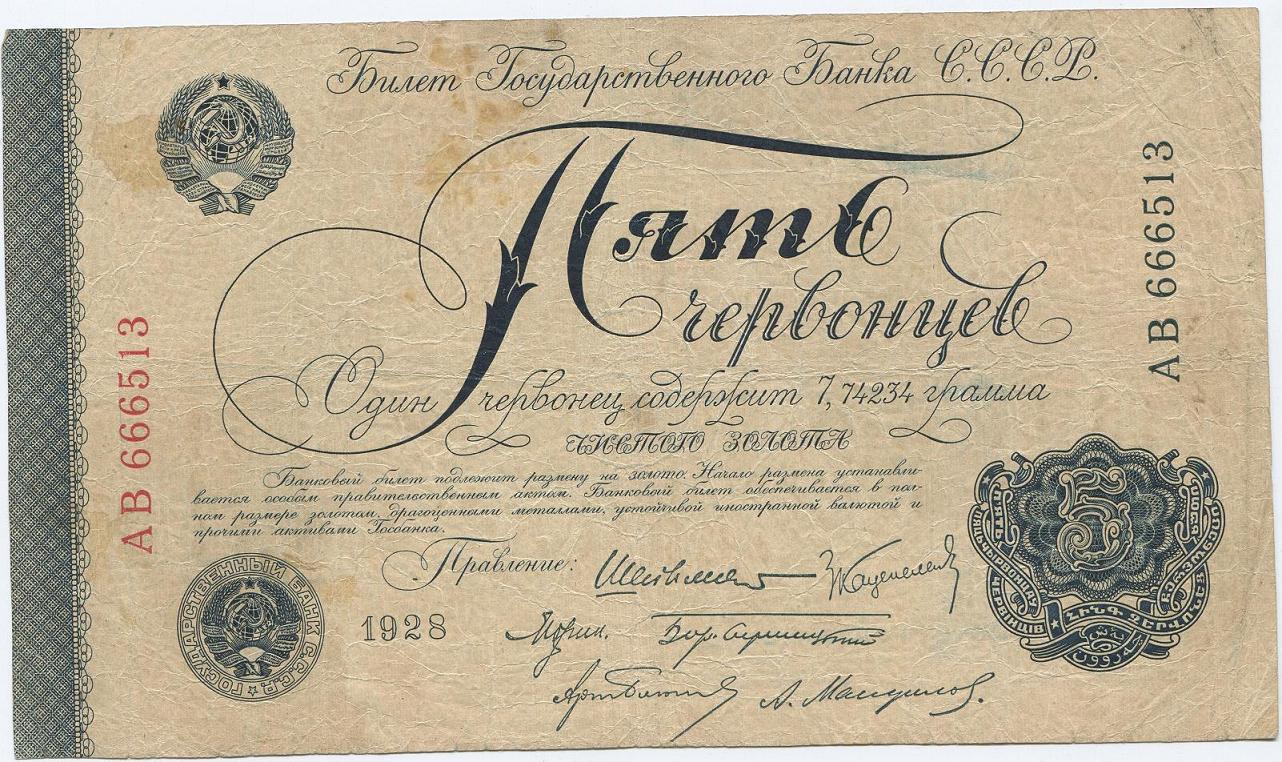 Билет Государственного Банка С.С.С.Р.
Пять
червонцев
АВ 666513
АВ 666513
Один червонец содержит 7,74234 грамма
чистого золота
Банковый билет подлежит размену на золото. Начало размена устанавли-
вается особым правительственным актом. Банковый билет обеспечивается в пол-
ном размере золотом, драгоценными металлами, устойчивой иностранной валютой и
прочими активами Госбанка.
Правление:
1928
ГОСУДАРСТВЕННЫЙ БАНК С.С.С.Р.
5
ПЯТЬ ЧЕРВОНЦІВ
ՀԻՆԳ ՉԵՐՎՈՆԵՑ